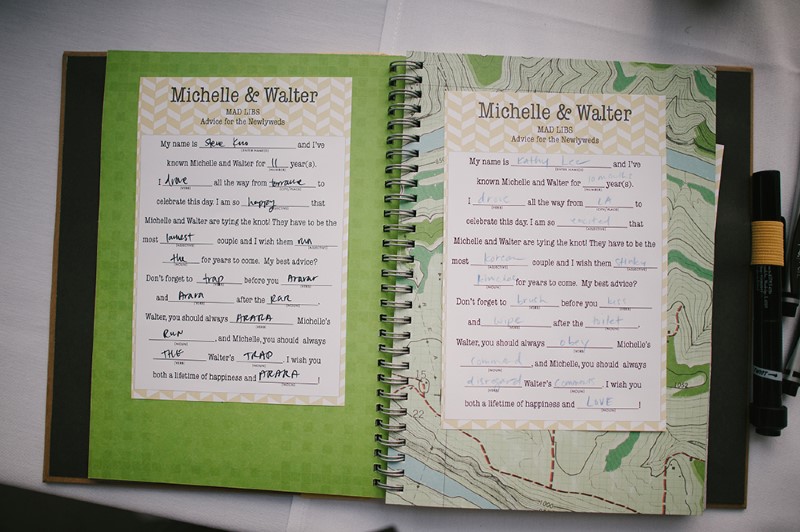 Michelle & Walter
MAD LIBS
Advice for the Newlyweds
My name is Steve Kuo and I've
known Michelle and Walter for 11 year(s).
I drove all the way from torrance to
celebrate this day. I am so happy that
Michelle and Walter are tying the knot! They have to be the
most lamest couple and I wish them run
the for years to come. My best advice?
Don't forget to trap before you Aravar
and Arara after the RAR.
Walter, you should always ARARA Michelle's
RUN, and Michelle, you should always
THE Walter's TRAP. I wish you
both a lifetime of happiness and ARARA!
Michelle & Walter
MAD LIBS
Advice for the Newlyweds
My name is Kathy Lee and I've
known Michelle and Walter for 10 minutes year(s).
I drove all the way from LA to
celebrate this day. I am so excited that
Michelle and Walter are tying the knot! They have to be the
most Korean couple and I wish them stinky
for years to come. My best advice?
Don't forget to brush before you kiss
and wipe after the toilet.
Walter, you should always obey Michelle's
command, and Michelle, you should always
disregard Walter's commands. I wish you
both a lifetime of happiness and LOVE!
15
22
1000
1252